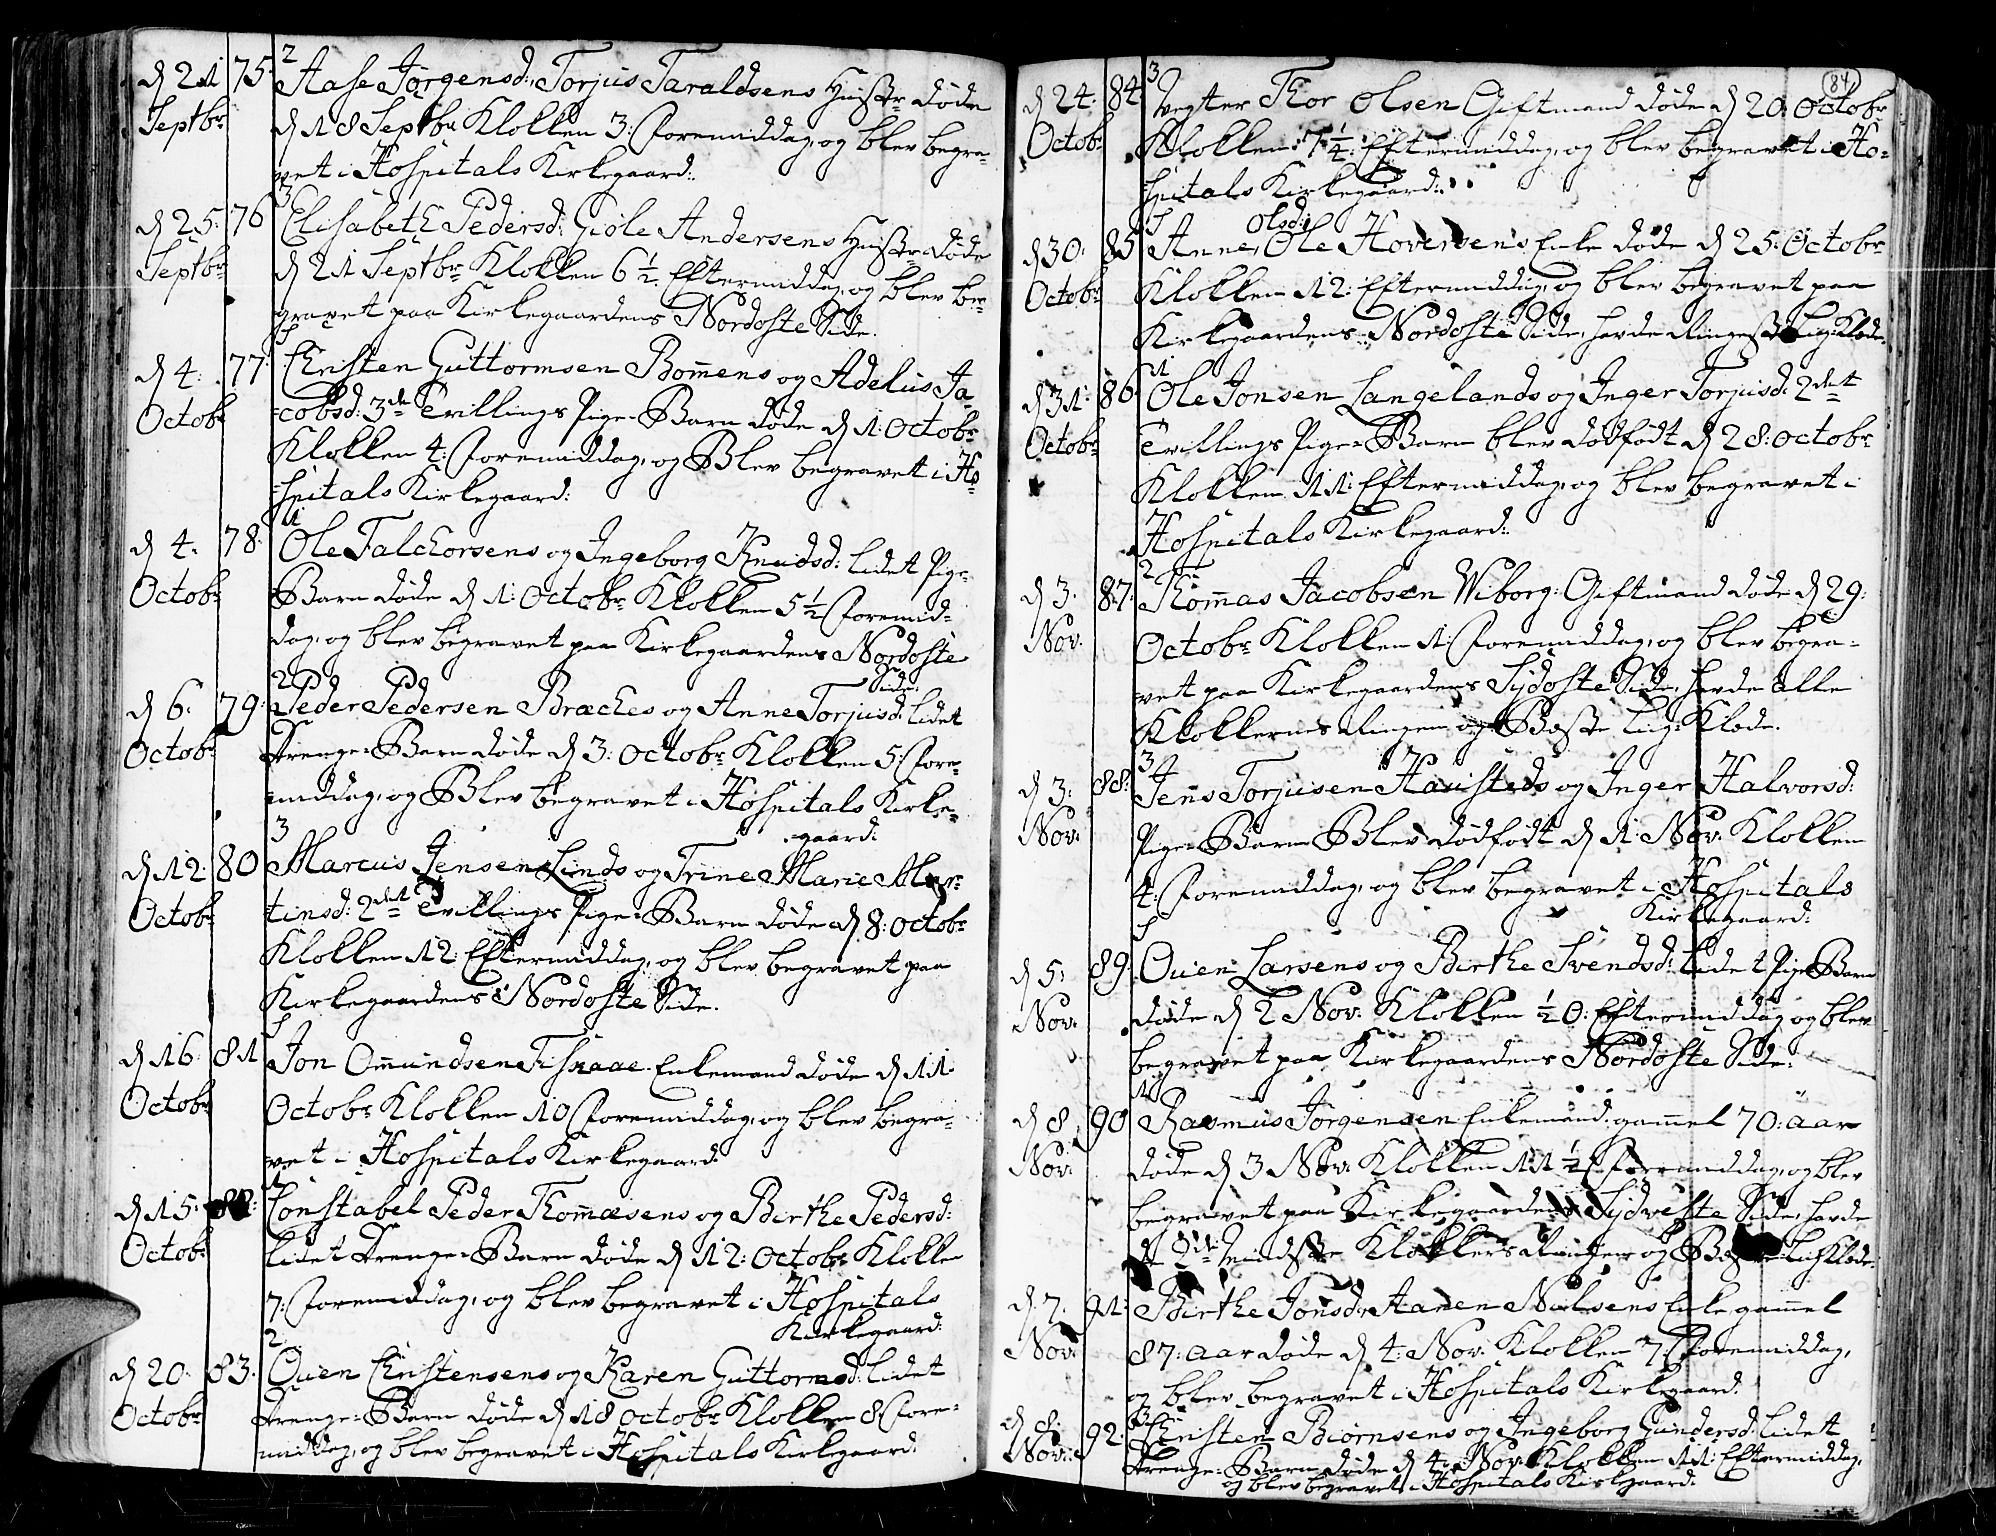 d 21 Septbr 75. 2
Aase Jørgensd: Torjus Taraldsens Hustr: døde
d 18 Septbr Klokken 3: Formiddag, og blev begra-
vet i Hospitals Kirkegaard:
d 25: Septbr 76 3
Elisabeth Pedersd: Giøle Andersens Hustr: døde
d 21 Septbr Klokken 6 ½ Eftermiddag, og blev be-
gravet paa Kirkegaardens Nordoste Side.
d 4: Octobr 77:
Christen Guttormsen Bom̄ens og Adelus Ja-
cobsd: 3de Tvillings Pige-Barn døde d 1: Octobr
Klokken 4: Formiddag, og Blev begravet i Ho-
spitals Kirkegaard:
d 4. Octobr 78. 1
Ole Falchorsens og Ingeborg Knudsd: lidet Pige-
Barn døde d 1: Octobr Klokken 5 ½ Formid-
dag, og blev begravet paa Kirkegaardens Nordoste
Side.
d 6. Octobr 79: 2
Peder Pedersen Bræches og Anne Torjusd: lidet
Drenge-Barn døde d 3: Octobr Klokken 5: For-
middag, og Blev begravet i Hospitals Kirke-
gaard:
d 12: Octobr 80 3
Marcus Jensen Linds og Trine Marie Mor-
tinsd: 2det Tvillings Pige-Barn døde d 8: Octobr
Klokken 12: Eftermiddag, og blev begravet paa
Kirkegaardens Nordoste Side.
d 16: Octobr 81
Jon Om̄undsen Enkemand døde d 11
Octobr Klokken 10 Formiddag, og blev begra-
vet i Hospitals Kirkegaard:
d 15: Octobr 82: 1
Constabel Peder Thom̄æsens og Birthe Pedersd:
lidet Drenge-Barn døde d 12: Octobr Klokken
7: Formiddag, og blev begravet i Hospitals
Kirkegaard:
d 20: Octobr 83. 2
Ouen Christensens og Karen Guttormsd: lidet
Drenge-Barn døde d 18 Octobr Klokken 8 For-
middag, og blev begravet i Hospitals Kirkegaard:
84.
d 24: Octobr 84 3
Vegter Thor Olsen Giftmand døde d 20: Octobr
Klokken 7 ¼: Eftermiddag, og blev begravet i Ho-
spitals Kirkegaard:
d 30: Octobr 85
Olsd:
Anne, Ole Hoversens Enke døde d 25: Octobr
Klokken 12: Eftermiddag, og blev begravet paa
Kirkegaardens Nordoste Side, havde Liig-Klæde.
d 31: Octobr 86 1
Ole Jonsen Langelands og Inger Torjusd: 2det
Tvillings Pige-Barn blev dødfødt d 28: Octobr
Klokken 11: Eftermiddag, og blev begravet i
Hospitals Kirkegaard:
d 3. Nov. 87. 2
Thom̄as Jacobsen Wiborg: Giftmand døde d 29:
Octobr Klokken 1: Formiddag, og blev begra-
vet paa Kirkegaardens Sydoste Side, havde alle
Klokkernes Ringen og Beste Liig-Klæde.
d 3. Nov: 88: 3
Jens Torjusen Hausteds og Inger Halvorsd:
Pige-Barn Blev dødfødt d 1: Nov: Klokken
4: Formiddag, og blev begravet i Hospitals
Kirkegaard:
d 5: Nov: 89:
Ouen Larsens og Birthe Svendsd: lidet Pige Barn
døde d 2 Nov: Klokken ½ 0: Eftermiddag, og blev
begravet paa Kirkegaardens Nordoste Side:
d 8 Nov: 90 1
Rasmus Jørgensen Enkemand: gam̄el 70: aar
døde d 3 Nov: Klokken 11 ½ Formiddag, og blev
begravet paa Kirkegaardens Sydveste Side, havde
Mindste Klokkers Ringen og Beste Liig-Klæde:
d 7: Nov: 91:
Birthe Jonsd: Aanen Nielsens Enke gam̄el
87: aar døde d 4: Nov: Klokken 7: Formiddag,
og blev begravet i Hospitals Kirkegaard:
d 8: Nov: 92: 3
Christen Biørnsens og Ingeborg Gundersd: lidet
Drenge-Barn døde d 4: Nov: Klokken 11: Eftermiddag,
og blev begravet i Hospitals Kirkegaard: